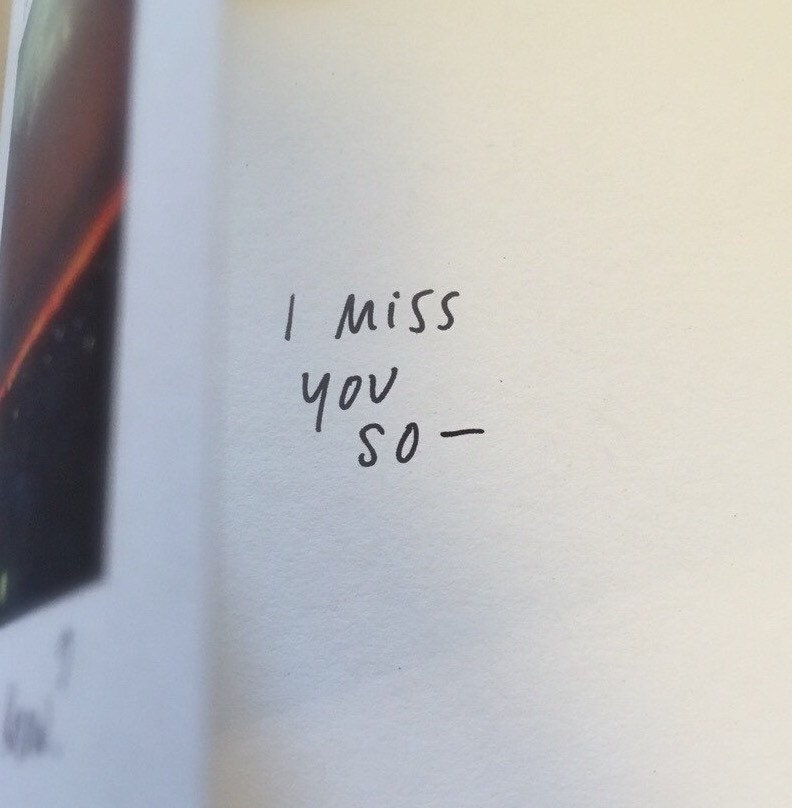 I MiSS
YOU
SO —